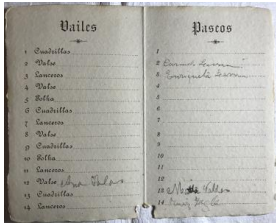 Vailes
1 Cuadrillas
2 Valse
3 Lanceros
4 Valse
5 Polka
6 Cuadrillas
7 Lanceros
8 Valse
9 Cuadrillas
10 Polka
11 Lanceros
12 Valse
13 Cuadrillas
14 Lanceros
Pascos
1
2
3
4
5
6
7
8
9
10
11
12
13
14